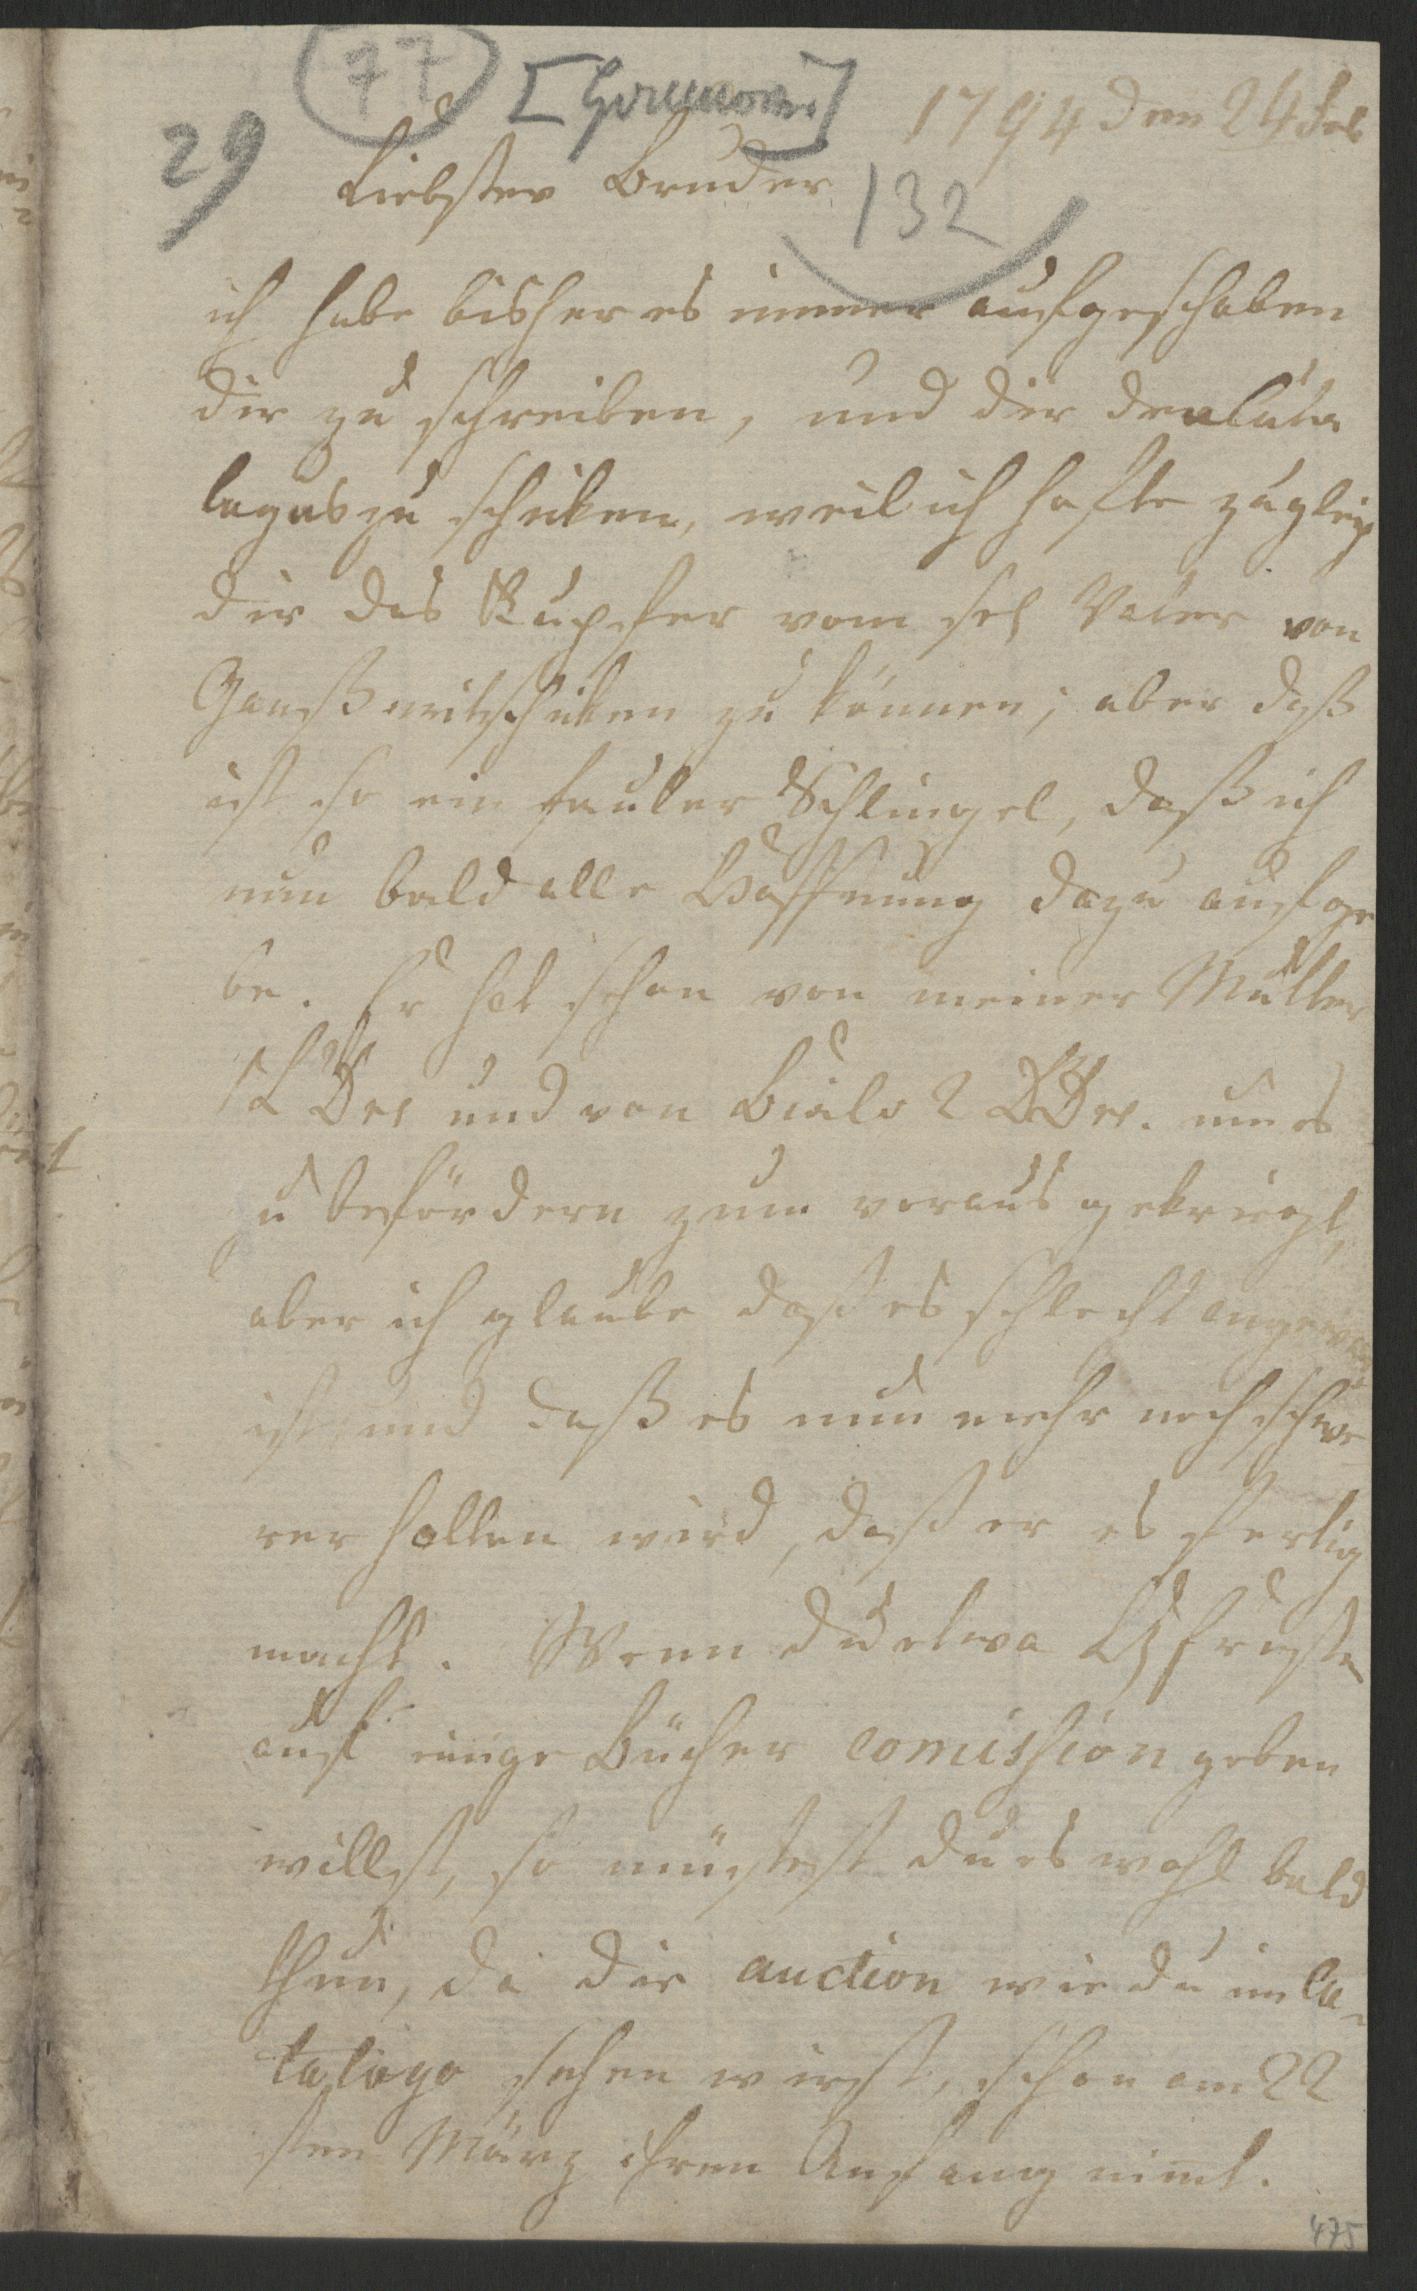 77 [Hermann]
1794 den 24 Feb
29
Liebster Bruder
132
ich habe bisher es immer aufgeschoben
dir zu schreiben, und dir den Cata
logus zu schicken, weil ich hofte zugleich
dir das Kupfer vom sel Vater von
Ganß mitschicken zu können; aber daß
ist so ein fauler Schlingel, daß ich
nun bald alle Hoffnung dazu aufge
be. Er hat schon von meiner Mutter
1 und von 2 um es
zu befördern zum voraus gekriegt,
aber ich glaube daß es schlecht angewand
ist und daß es nun mehr noch schwe
rer halten wird, daß er es fertig
macht. Wenn du etwa
auf einige Bücher comission geben
willst, so müstest du es wohl bald
thun, da die auction wie du im Ca-
talogo sehen wirst, schon am 22
sten März ihren Anfang nimt.
475